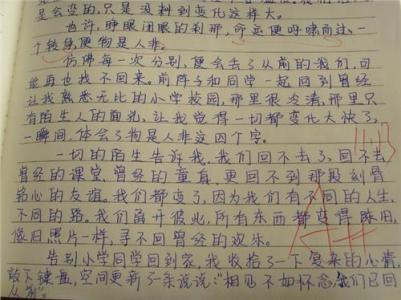 是会变的,只是没料到变化这样大。
也许,睁眼闭眼的刹那,命运便呼啸而过,一
个转身,便物是人非。
仿佛每一次分别,便会丢了从前的我们,可
能再也找不回来。前阵子和同学一起回到曾经
让我熟悉无比的小学校园,那里很冷清,那里只
有陌生人的面孔,让我觉得一切都变化太快了,
一瞬间,体会了物是人非这四个字。
一切的陌生告诉我,我们回不去了,回不去
曾经的课堂,曾经的童真,更回不到那段刻骨
铭心的友谊。我们都变了,因为我们有不同的人生,
不同的路。我们离开彼此,所有东西都变得陈旧,
像旧照片一样,寻不回曾经的欢乐。
告别小学同学回到家,我收拾了一下复杂的小情,
敲下键盘,空间更新了一条说说:“相见不如怀念,我们已回